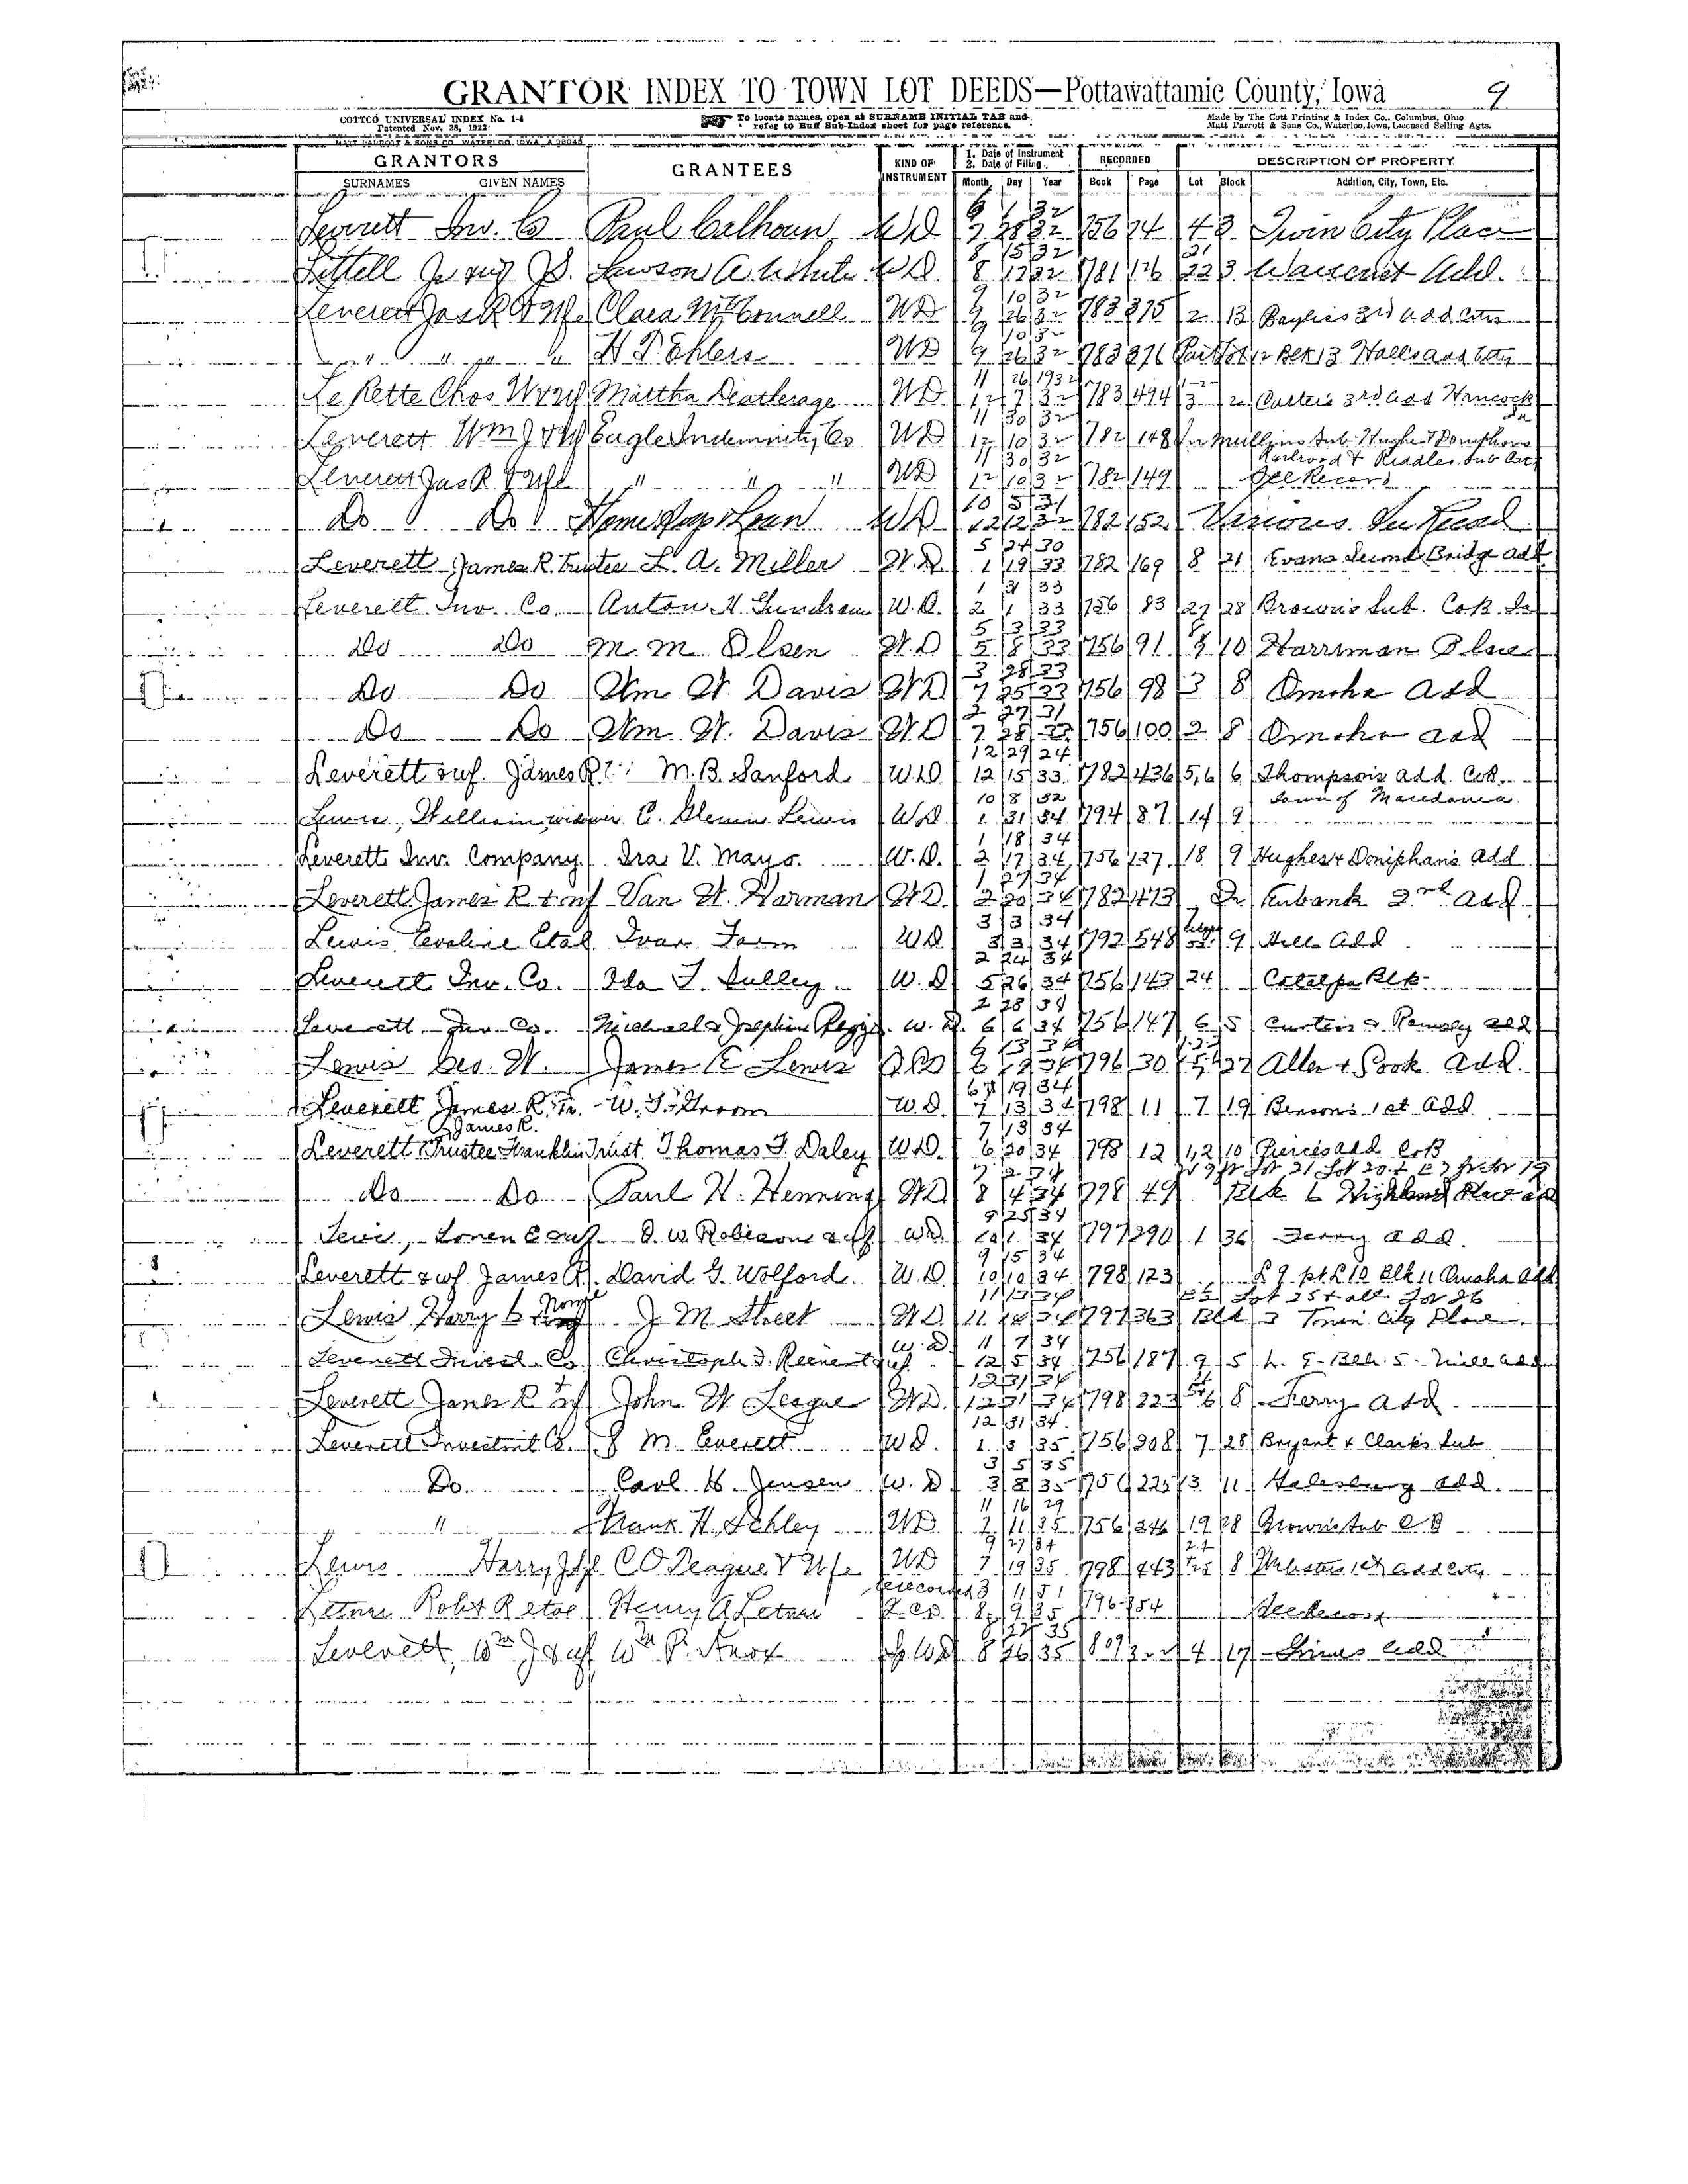 GRANTOR INDEX TO TOWN LOT DEEDS—Pottawattamie County, Iowa 9
COTTCO UNIVERSAL INDEX No. 1-4
Patented Nov. 28, 1922
To locate names, open at SURNAME INITIAL TAB and
refer to Buff Sub-Index sheet for page reference.
Made by The Cott Printing & Index Co., Columbus, Ohio
Matt Parrott & Sons Co., Waterloo, Iowa, Licensed Selling Agts.
GRANTORS GRANTEES KIND OF INSTRUMENT 1. Date of Instrument 2. Date of Filing RECORDED DESCRIPTION OF PROPERTY
SURNAMES GIVEN NAMES Month Day Year Book Page Lot Block Addition, City, Town, Etc.
6 1 32
Leverett Inv. Co Paul Calhoun WD 7 28 32 756 74 4 3 Twin City Place
8 15 32 21
Littell J. S. Lawson A. White WD 8 17 32 781 126 22 3 Add.
9 10 32
Leverett Jas R & Wf Clara McConnell WD 9 26 32 783 375 2 13 Bayliss 3rd add City
9 10 32
" " " " H. P. Ehlers WD 9 26 32 783 376 Part Lot 12 Blk 13 Halls add City
11 26 1932 1-2
Le Rette Chas W & wf Martha Deatherage WD 12 7 32 783 494 3 2 Carter's 3rd add Hancock
11 30 32
Leverett Wm J & Wf Eagle Indemnity Co WD 12 10 32 782 148 In Mullins Sub Hughes & Doniphans
11 30 32 Railroad & Riddles Sub City
Leverett Jas R & Wf " " " WD 12 10 32 782 149 See Record
10 5 31
Do Do Home & Loan WD 12 12 32 782 152 Various See Record
5 24 30
Leverett James R. Trustee L. A. Miller W.D. 1 19 33 782 169 8 21 Evans Second Bridge add
1 31 33
Leverett Inv. Co. Anton H. Gundrum W.D. 2 1 33 756 83 27 28 Brown's Sub. Co.B. Ia
5 3 33
Do Do M. M. Olsen W.D 5 8 33 756 91 9 10 Harriman Place
3 28 33
Do Do Wm W. Davis WD 7 25 33 756 98 3 8 Omaha add
2 27 31
Do Do Wm W. Davis WD 7 28 33 756 100 2 8 Omaha add
12 29 24
Leverett & wf. James R. M. B. Sanford W.D. 12 15 33 782 436 5,6 6 Thompson's add. C.B.
10 8 32 Town of Macedonia
Lewis, William, widower C. Glenn Lewis W.D. 1 31 34 794 87 14 9
1 18 34
Leverett Inv. Company. Ira V. Mayo. W.D. 2 17 34 756 127 18 9 Hughes & Doniphan's add
1 27 34
Leverett James R & wf Van W. Harman WD 2 20 34 782 473 In Eubank 2nd add
3 3 34
Lewis Evaline Etal Ivan Farm WD 3 3 34 792 548 9 Hills add
2 24 34
Leverett Inv. Co. Ida F. Sulley. W.D 5 26 34 756 143 24 Catalpa Blk.
2 28 34
Leverett Inv. Co. Michael & Josephine W.D. 6 6 34 756 147 6 5 Curtis & Ramsey add
Lewis Geo. W. James E Lewis QCD 796 30 22 Allen & Cook add.
19 34
Leverett James R. Tr. W. F. Groom W.D. 7 13 34 798 11 7 19 Benson's 1st add
James R. 7 13 34
Leverett Trustee Franklin Trust. Thomas F. Daley WD. 6 20 34 798 12 1,2 10 Pierces add C.B
Lot 21 Lot 20 & 19
Do Do Paul H. Henning WD 8 4 34 798 49 Blk 6 Highland Place
9 25 34
Lewis, Loren E & wf. O. W. Robisons & wf WD. 10 1 34 797 290 1 36 Ferry add.
9 15 34
Leverett & wf. James R. David G. Wolford. W.D. 10 10 34 798 123 L 9 pt. L 10 Blk 11 Omaha add
11 13 34 E½ Lot 25 & all Lot 26
Lewis Harry J. M. Street WD. 11 34 797 363 Blk 3 Twin City Place
W.D 11 7 34
Leverett Invest. Co. Christoph F. 12 5 34 756 187 9 5 L. 9 Blk. 5 add
12 31 34
Leverett James R & wf John W League WD. 12 31 34 798 223 6 8 Ferry add
12 31 34
Leverett Investmt Co. J M. Everett WD. 1 3 35 756 208 7 28 Bryant & Clark's Sub
3 5 35
Do. Carl H. Jensen W.D 3 8 35 756 225 13 11 Galesburg add.
11 16 29
" Frank H. Schley WD 7 11 35 756 246 19 28 Brown's Sub C B
9 27 34
Lewis Harry C. O. Teague & Wife WD 7 19 35 798 443 8 Websters 1st add City
rerecorded 3 1 51
Letner Robt R etal Henry A Letner Q CD 8 9 35 796 354 See Record
8 22 35
Leverett, Wm J & wf Wm P. Knox Sp. WD 8 26 35 809 4 17 Grimes add